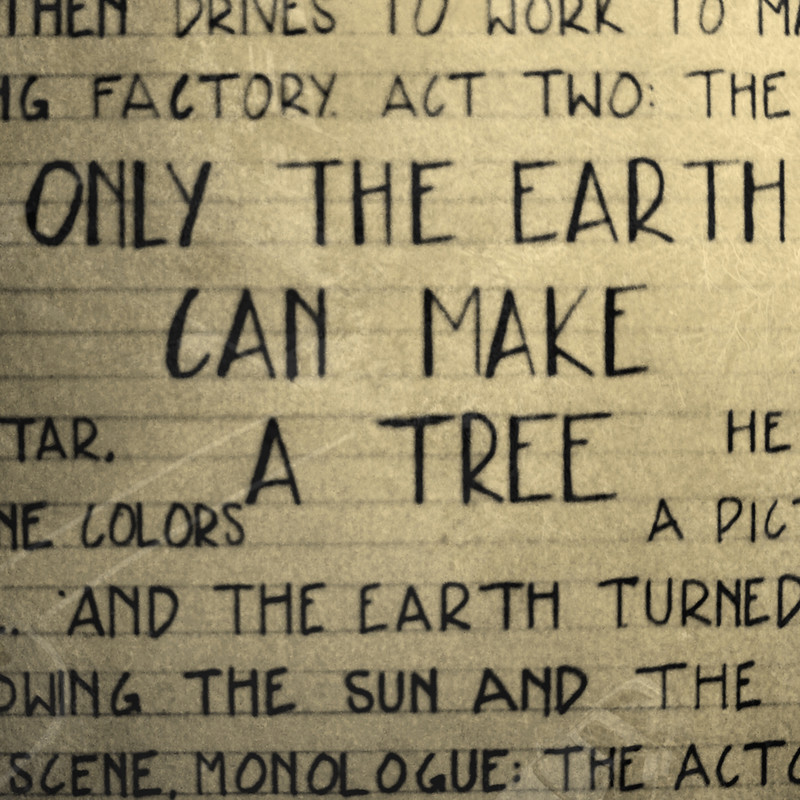 THEN DRIVES TO WORK TO
NG FACTORY. ACT TWO: THE
ONLY THE EARTH
CAN MAKE
TAR. A TREE HE
NE COLORS A PICT
. AND THE EARTH TURNED
OWING THE SUN AND THE
SCENE, MONOLOGUE: THE ACTO